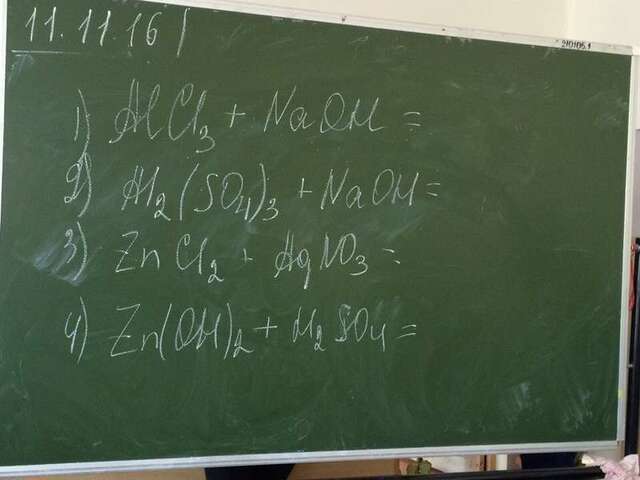 11.11.16
1) AlCl₃ + NaOH =
2) Al₂(SO₄)₃ + NaOH =
3) ZnCl₂ + AgNO₃ =
4) Zn(OH)₂ + H₂SO₄ =